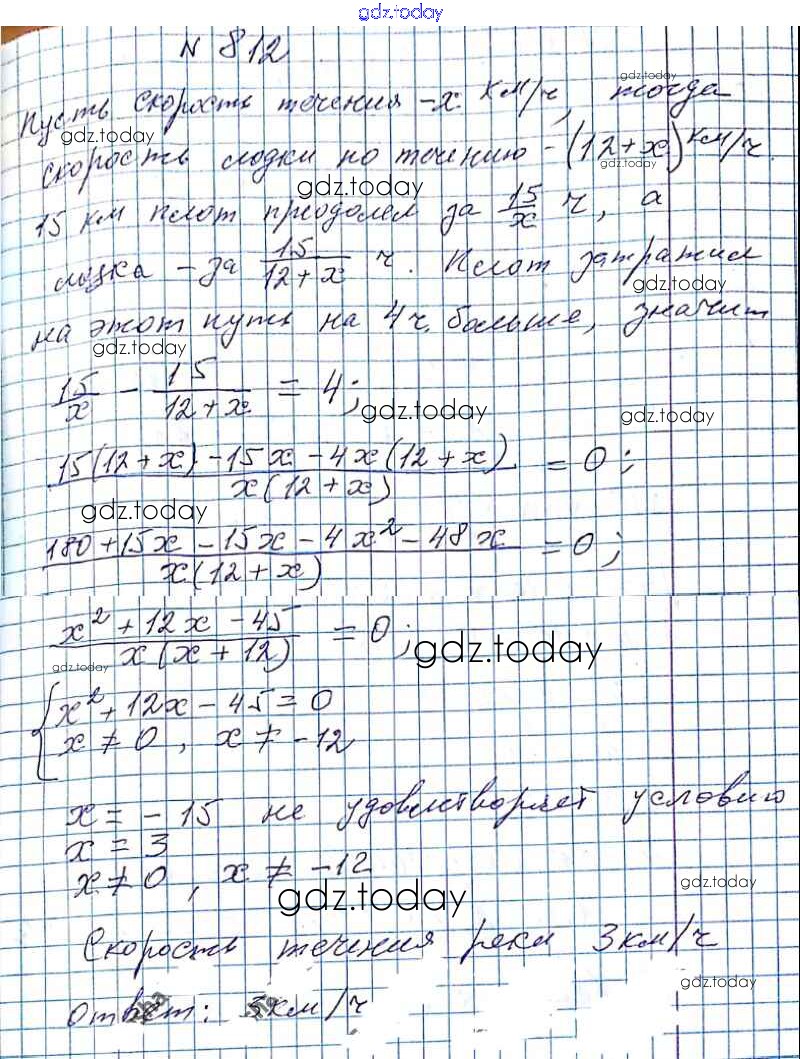 gdz.today
N 812
Пусть скорость течения - x км/ч, тогда
скорость лодки по течению - (12+x) км/ч.
15 км плот преодолел за 15/x ч, а
лодка - за 15/(12+x) ч. Плот затратил
на этот путь на 4 ч. больше, значит
15/x - 15/(12+x) = 4;
(15(12+x) - 15x - 4x(12+x))/(x(12+x)) = 0;
(180+15x - 15x - 4x² - 48x)/(x(12+x)) = 0;
(x² + 12x - 45)/(x(x+12)) = 0;
{ x² + 12x - 45 = 0
x ≠ 0, x ≠ -12
x = - 15 не удовлетворяет условию
x = 3
x ≠ 0, x ≠ -12
Скорость течения реки 3 км/ч
Ответ: 3 км/ч
gdz.today
gdz.today
gdz.today
gdz.today
gdz.today
gdz.today
gdz.today
gdz.today
gdz.today
gdz.today
gdz.today
gdz.today
gdz.today
gdz.today